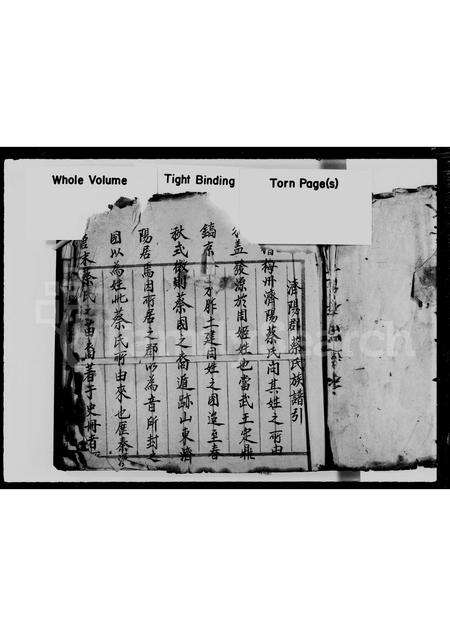 Whole Volume
Tight Binding
Torn Page(s)
濟陽郡蔡氏族譜引
梅州濟陽蔡氏其姓之所由
蓋發源於周姬姓也當武王定鼎
鎬京胙土建同姓之國造至春
秋式微則蔡國之裔遁跡山東濟
陽居焉因所居之郡以為音所封之
國以為姓此蔡氏所由來也歷秦漢
來蔡氏之苗裔著于史冊者